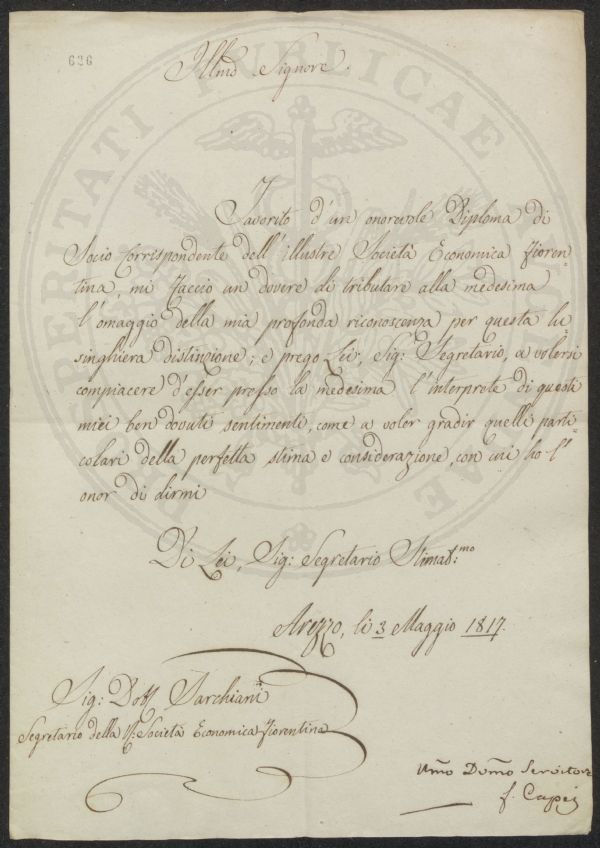 636
Illmo Signore.
Favorito d'un onorevole Diploma di
Socio Corrispondente dell'illustre Società Economica Fioren=
tina, mi faccio un dovere di tributare alla medesima
l'omaggio della mia profonda riconoscenza per questa lu=
singhiera distinzione; e prego Lei, Sig: Segretario, a volersi
compiacere d'esser presso la medesima l'interprete di questi
miei ben dovuti sentimenti, come a voler gradir quelli parti=
colari della perfetta stima e considerazione, con cui ho l'
onor di dirmi
Di Lei, Sig: Segretario Stimat:mo
Arezzo, li 3 Maggio 1817.
Sig: Dott Sarchiani
Segretario della R: Società Economica Fiorentina
Umo Devmo Servitore
f. Capei
PROSPERITATI PUBLICAE AUGENDAE